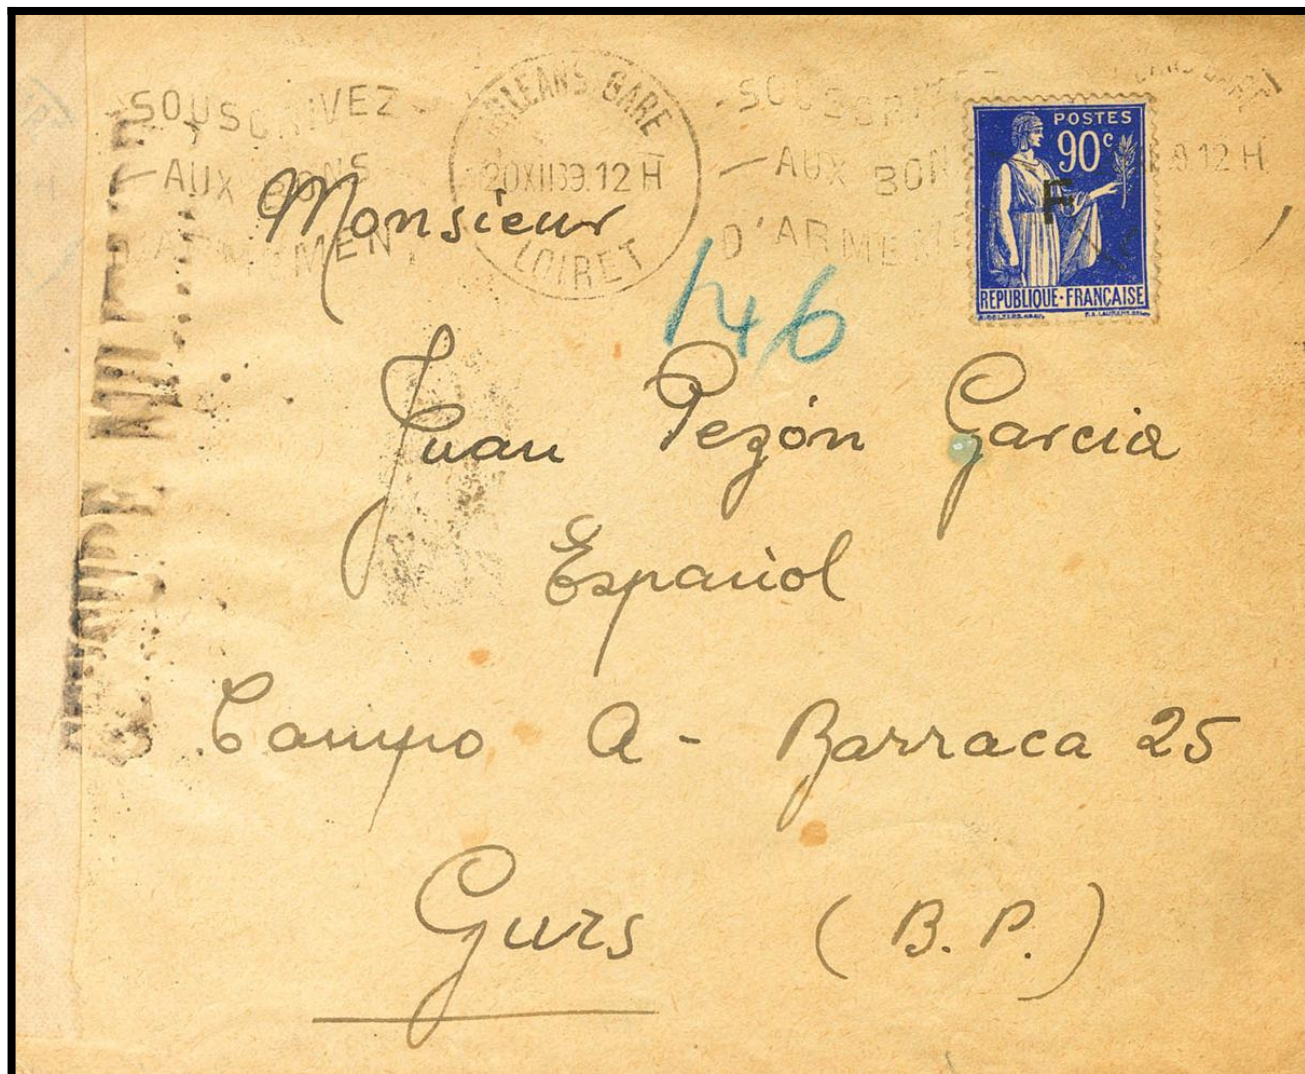 SOUSCRIVEZ
AUX BONS
D'ARMEMENT
ORLEANS GARE
20 XII 39. 12 H
LOIRET
AUX BON
D'ARMEME
9 12 H
POSTES
90c
F
REPUBLIQUE·FRANÇAISE
Monsieur
146
Juan Pezón Garcia
Español
Campo A - Barraca 25
Gurs (B. P.)